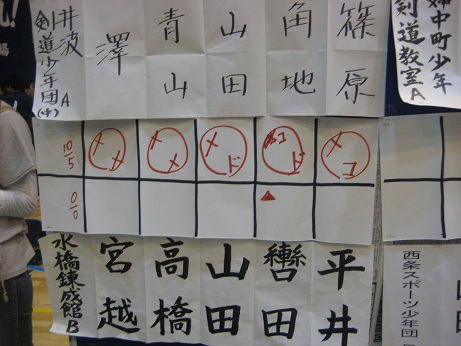 篠原
角地
山田
青山
澤
井波
剣道少年団A
(中)
メコ
メド
メメ
メメ
10/5
0/0
▲
平井
轡田
山田
高橋
宮越
水橋錬成館B
婦中町少年
剣道教室A
西条スポーツ少年団